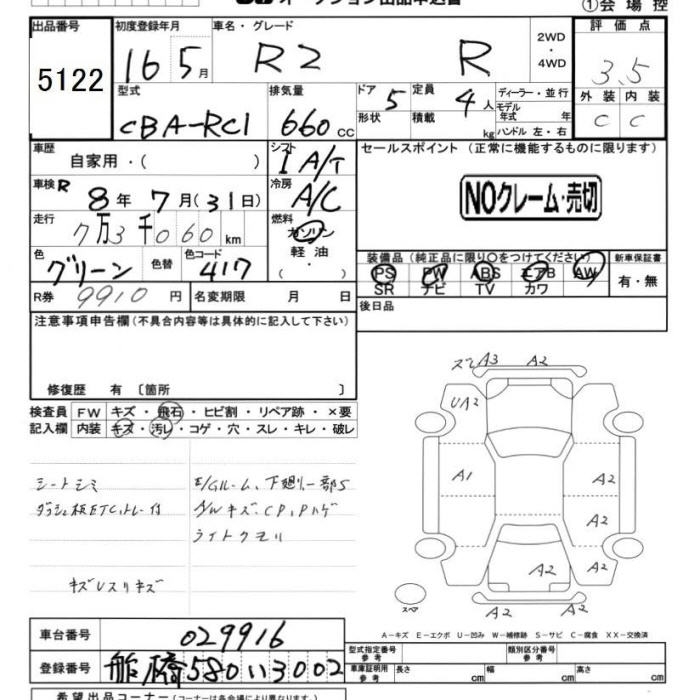 ①会場控
出品番号
5122
初度登録年月
16 5月
車名・グレード
R2 R
2WD
・
4WD
評価点
3.5
外装 内装
C C
型式
CBA-RC1
排気量
660 CC
ドア 5
形状
定員 4人
積載 kg
ディーラー・並行
モデル
年式 年
ハンドル 左・右
車歴
自家用・( )
シフト
IA/T
セールスポイント (正常に機能するものに限ります)
NOクレーム・売切
車検 R 8年 7月(31日)
冷房
A/C
走行
7万3千060km
燃料
ガソリン
・
軽油
・
( )
色
グリーン
色替
色コード
417
装備品 (純正品に限り○をつけてください)
PS PW ABS エアB AW
SR ナビ TV カワ
新車保証書
有・無
R券 9910円
名変期限 月 日
後日品
注意事項申告欄(不具合内容等は具体的に記入して下さい)
修復歴 有 〔箇所 〕
検査員
記入欄
FW キズ・飛石・ヒビ割・リペア跡・×要
内装 キズ・汚レ・コゲ・穴・スレ・キレ・破レ
シートシミ
ダッシュ板ETC,トレー付
キズUスリキズ
E/Gルーム、下廻り一部S
A/Wキズ、CP,Pハゲ
ライトクモリ
ズレ A3 A2
UA2
A1
A2
A2
A2 A2
A2
スペア
A-キズ E-エクボ U-凹み W-補修跡 S-サビ C-腐食 XX-交換済
車台番号
029916
登録番号
船橋580い3002
型式指定番号
参考
類別区分番号
参考
車庫証明用
参考
長さ cm 幅 cm 高さ cm
希望出品コーナー(コーナーは各会場により異なります)